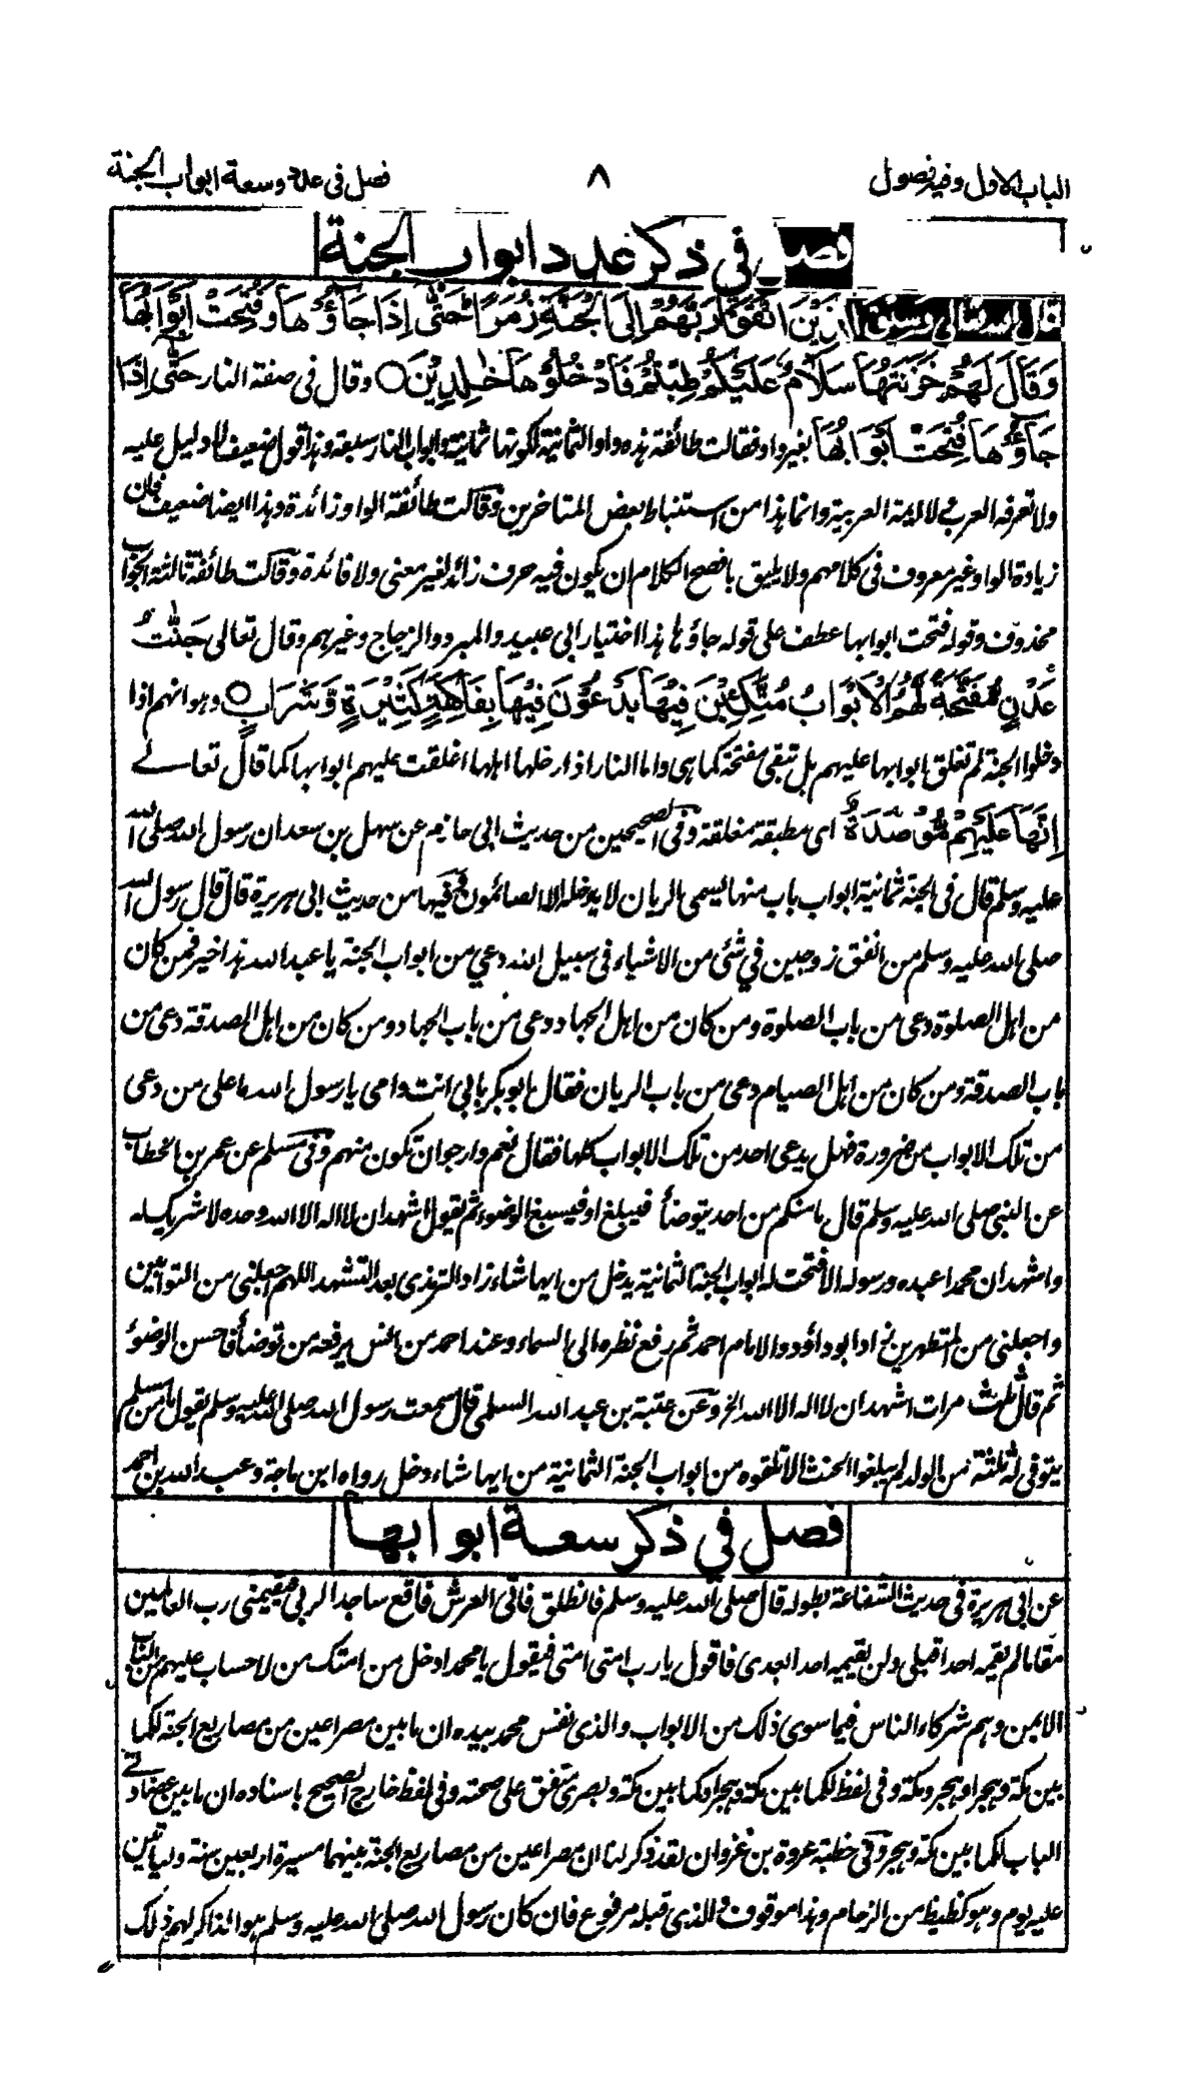 الباب الاول وفيه فصول
٨
فصل فى عدد وسعة ابواب الجنة
فصل في ذكر عدد ابواب الجنة
قال الله تعالى وسيق الَّذِيْنَ اتَّقَوْا رَبَّهُمْ اِلَى الْجَنَّةِ زُمَرًا حَتّٰى اِذَا جَآؤُهَا وَفُتِحَتْ اَبْوَابُهَا
وَقَالَ لَهُمْ خَزَنَتُهَا سَلَامٌ عَلَيْكُمْ طِبْتُمْ فَادْخُلُوْهَا خٰلِدِيْنَ ○ وقال فى صفة النار حَتّٰى اِذَا
جَآؤُهَا فُتِحَتْ اَبْوَابُهَا بغير واو فقالت طائفة هذه واو الثمانية لكونها ثمانية وابواب النار سبعة وهذا قول ضعيف لا دليل عليه
ولا تعرفه العرب ولا ائمة العربية وانما هذا من استنباط بعض المتاخرين وقالت طائفة الواو زائدة وهذا ايضا ضعيف فان
زيادة الواو غير معروف فى كلامهم ولا يليق بافصح الكلام ان يكون فيه حرف زائد لغير معنى ولا فائدة وقالت طائفة ثالثة الجواب
محذوف وقوله فتحت ابوابها عطف على قوله جاؤها هذا اختيار ابى عبيد والمبرد والزجاج وغيرهم وقال تعالى جَنّٰتُ
عَدْنٍ مُّفَتَّحَةً لَّهُمُ الْاَبْوَابُ مُتَّكِئِيْنَ فِيْهَا يَدْعُوْنَ فِيْهَا بِفَاكِهَةٍ كَثِيْرَةٍ وَّشَرَابٍ ○ وهو انهم اذا
دخلوا الجنة لم تغلق ابوابها عليهم بل تبقى مفتحة كما هى واما النار اذا دخلها اهلها اغلقت عليهم ابوابها كما قال تعالے
اِنَّهَا عَلَيْهِمْ مُّؤْصَدَةٌ اى مطبقة مغلقة وفى الصحيحين من حديث ابى حازم عن سهل بن سعد ان رسول الله صلى الله
عليه وسلم قال فى الجنة ثمانية ابواب باب منها يسمى الريان لا يدخله الا الصائمون وفيها من حديث ابى هريرة قال قال رسول الله
صلى الله عليه وسلم من انفق زوجين في شئى من الاشياء فى سبيل الله دعي من ابواب الجنة يا عبد الله هذا خير فمن كان
من اهل الصلوة دعى من باب الصلوة ومن كان من اهل الجهاد دعى من باب الجهاد ومن كان من اهل الصدقة دعى من
باب الصدقة ومن كان من اهل الصيام دعى من باب الريان فقال ابو بكر بابي انت وامى يا رسول الله ما على من دعى
من تلك الابواب من ضرورة فهل يدعى احد من تلك الابواب كلها فقال نعم وارجوان تكون منهم وفى مسلم عن عمر بن الخطاب
عن النبى صلى الله عليه وسلم قال ما منكم من احد يتوضأ فيبلغ او فيسبغ الوضوء ثم يقول اشهد ان لا اله الا الله وحده لا شريك له
واشهد ان محمدا عبده ورسوله الا فتحت له ابواب الجنة الثمانية يدخل من ايها شاء زاد الترمذى بعد التشهد اللهم اجعلنى من التوابين
واجعلنى من المتطهرين زاد ابو داؤد والامام احمد ثم رفع نظره الى السماء وعند احمد من انس يرفعه من توضأ فاحسن الوضوء
ثم قال ثلث مرات اشهد ان لا اله الا الله الخ وعن عتبة بن عبد الله السلمى قال سمعت رسول الله صلى الله عليه وسلم يقول ما من مسلم
يتوفى له ثلثة من الولد لم يبلغوا الحنث الا تلقوه من ابواب الجنة الثمانية من ايها شاء دخل رواه ابن ماجة وعبد الله بن احمد
فصل في ذكر سعة ابوابها
عن ابى هريرة فى حديث الشفاعة بطوله قال صلى الله عليه وسلم فانطلق فاتى العرش فاقع ساجدا لربى فيقيمنى رب العالمين
مقاما لم يقمه احدا قبلى ولن يقيمه احدا بعدى فاقول يا رب امتى امتى فيقول يا محمد ادخل من امتك من لا حساب عليهم من الباب
الايمن وهم شركاء الناس فيما سوى ذلك من الابواب والذى نفس محمد بيده ان ما بين مصراعين من مصاريع الجنة لكما
بين مكة وهجر او هجر ومكة وفى لفظ لكما بين مكة وهجر او كما بين مكة وبصرى متفق على صحته وفى لفظ خارج الصحيح باسناده ان ما بين عضادتے
الباب لكما بين مكة وهجر وفى خطبة عروة بن غزوان لقد ذكر لنا ان مصراعين من مصاريع الجنة بينهما مسيرة اربعين سنة ولياتين
عليه يوم وهو كظيظ من الزحام وهذا موقوف والذى قبله مرفوع فان كان رسول الله صلى الله عليه وسلم هو الذاكر لهم ذلك